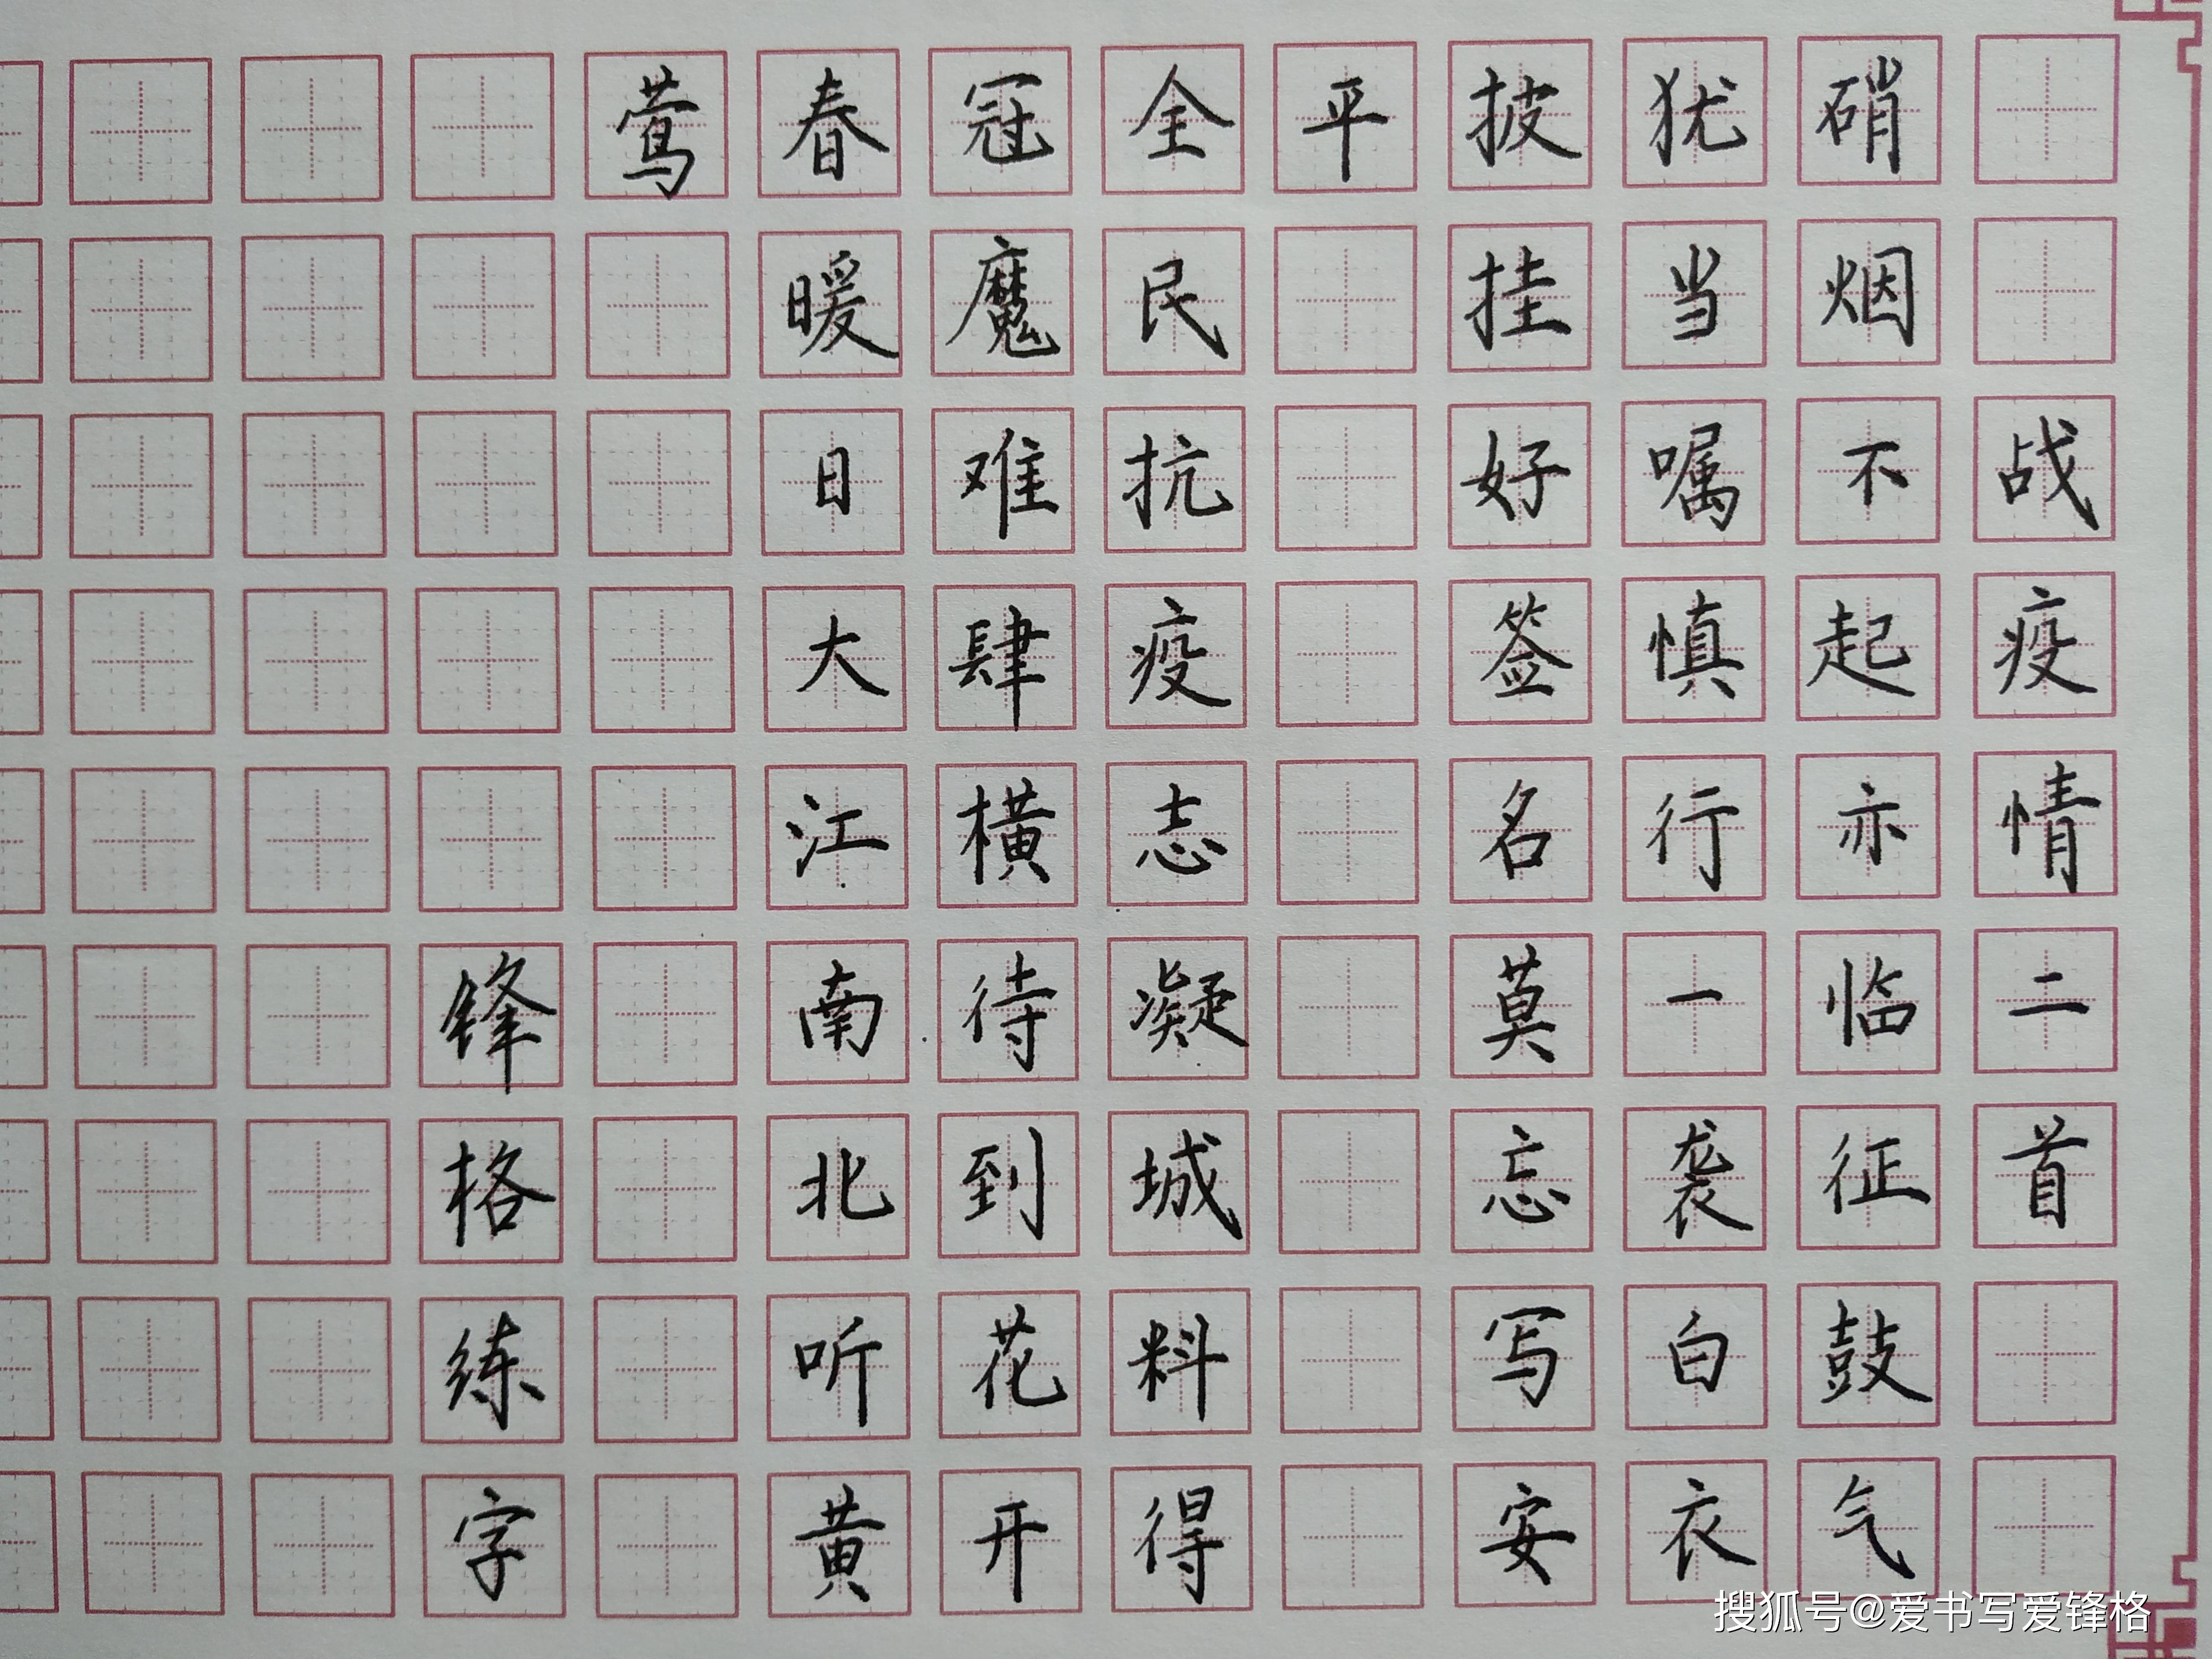 战疫情二首
硝烟不起亦临征鼓气
犹当嘱慎行一袭白衣
披挂好签名莫忘写安
平
全民抗疫志凝城料得
冠魔难肆横待到花开
春暖日大江南北听黄
莺
锋格练字
搜狐号@爱书写爱锋格